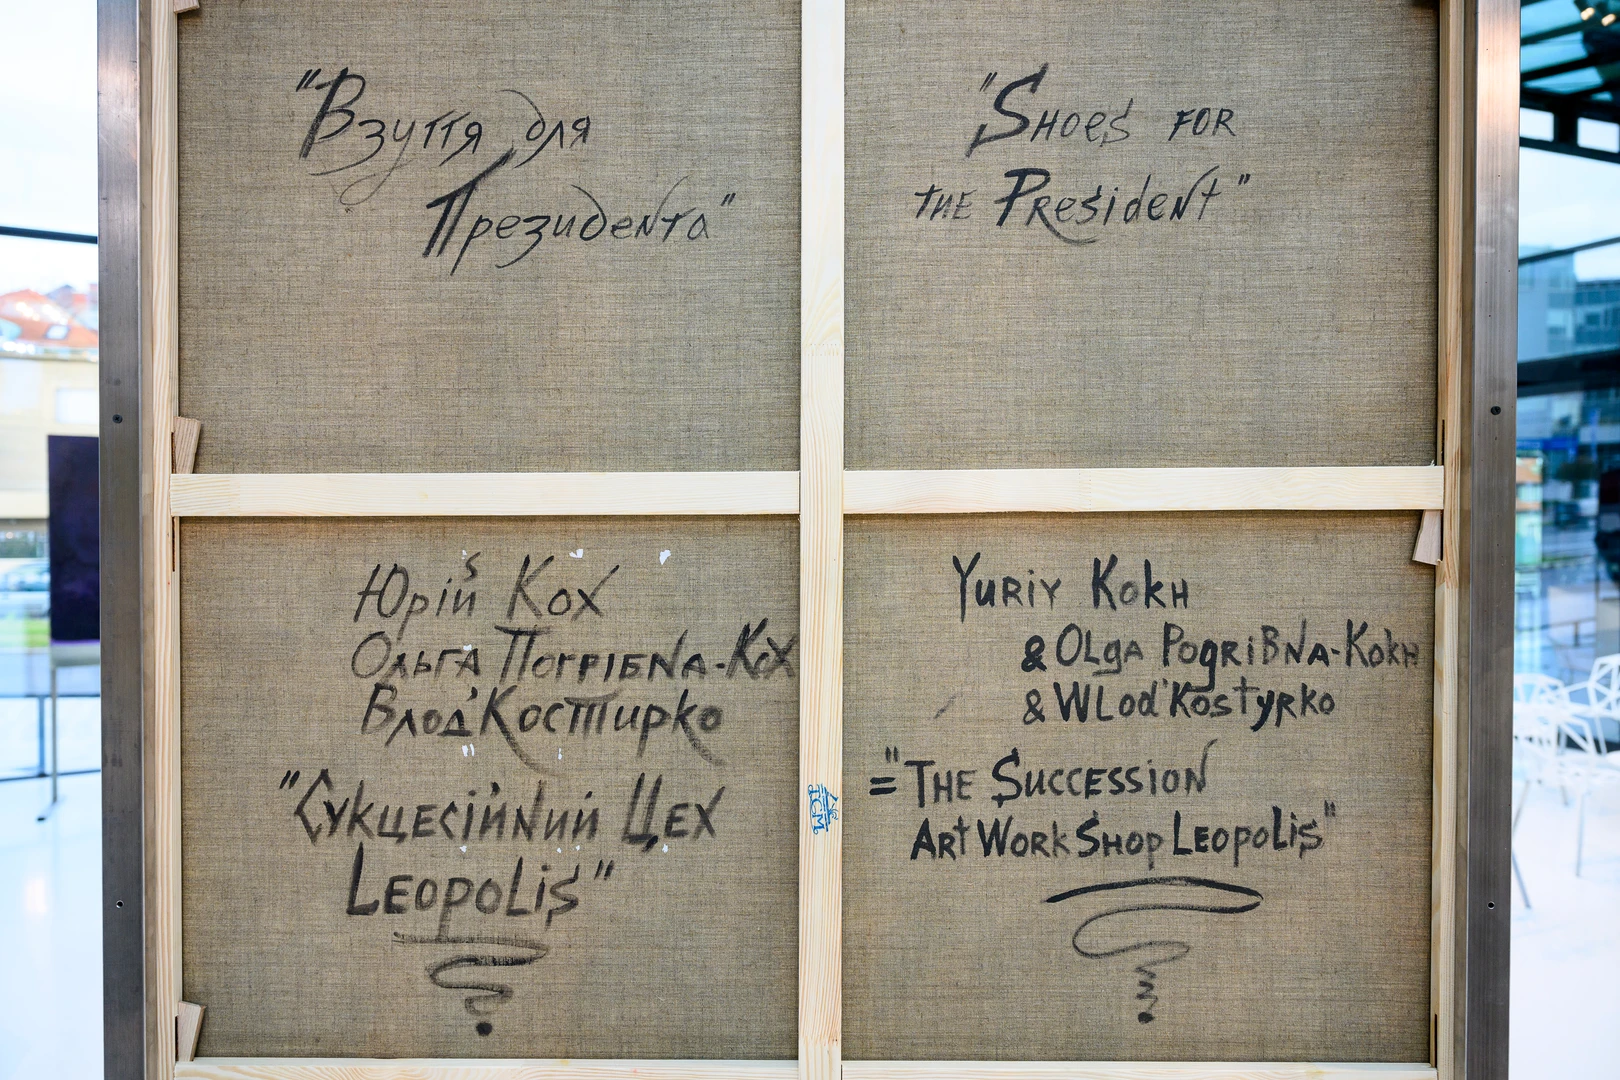 "Взуття для
Президента"
"SHOES FOR
THE PRESIDENT"
Юрій Кох
Ольга Погрібна-Кох
Влод'Костирко
"Сукцесійний Цех
LEOPOLIS"
YURIY KOKH
& OLGA POGRIBNA-KOKH
& WLOD'KOSTYRKO
="THE SUCCESSION
ART WORK SHOP LEOPOLIS"